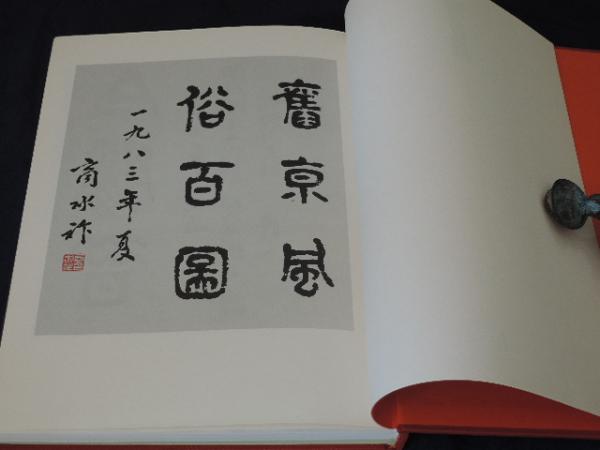 舊京風
俗百圖
一九八三年夏
商承祚